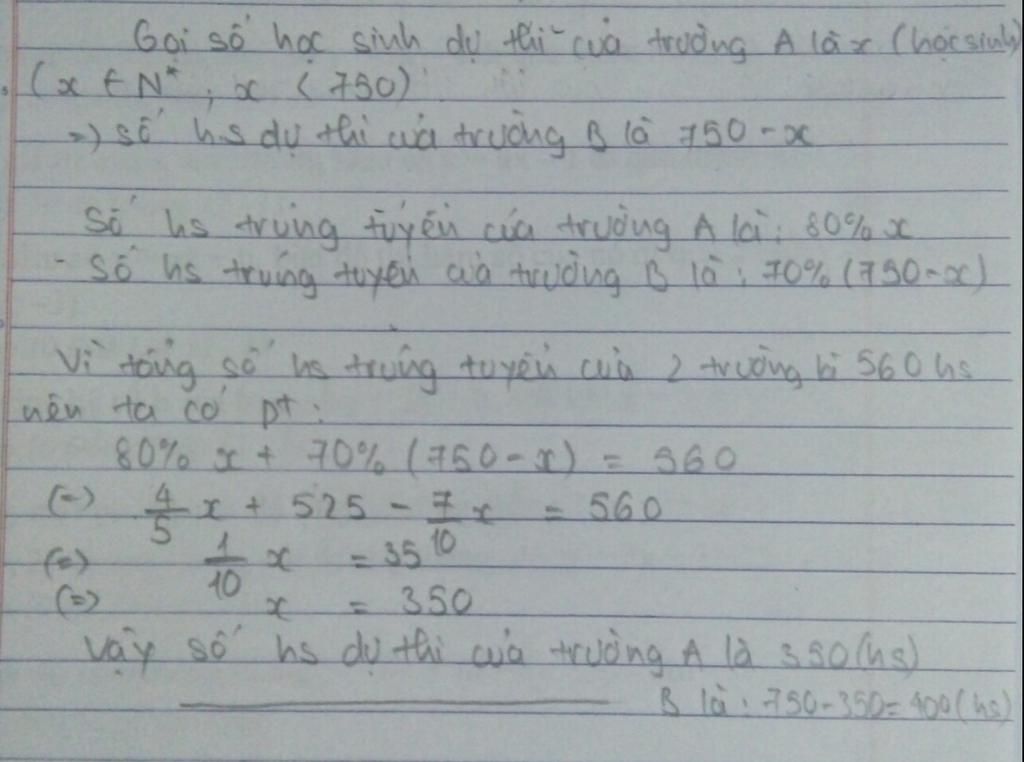 Gọi số học sinh dự thi của trường A là x (học sinh)
(x ∈ N*, x < 750)
=) số hs dự thi của trường B là 750 - x
Số hs trúng tuyển của trường A là: 80% x
- Số hs trúng tuyển của trường B là: 70% (750-x)
Vì tổng số hs trúng tuyển của 2 trường là 560 hs
nên ta có pt:
80% x + 70% (750 - x) = 560
(=) 4/5 x + 525 - 7/10 x = 560
(=) 1/10 x = 35
(=) x = 350
Vậy số hs dự thi của trường A là 350 (hs)
B là: 750-350=400 (hs)